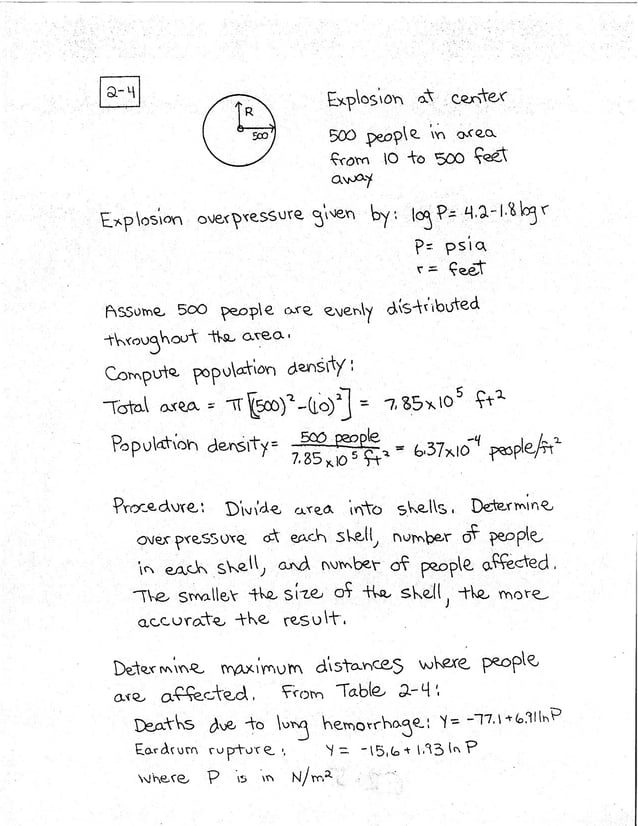 2-4
R
500
Explosion at center
500 people in area
from 10 to 500 feet
away
Explosion overpressure given by: log P = 4.2-1.8 log r
P = psia
r = feet
Assume 500 people are evenly distributed
throughout the area.
Compute population density:
Total area = π[(500)² - (10)²] = 7.85 x 10⁵ ft²
Population density = 500 people / 7.85 x 10⁵ ft² = 6.37x10⁻⁴ people/ft²
Procedure: Divide area into shells. Determine
overpressure at each shell, number of people
in each shell, and number of people affected.
The smaller the size of the shell, the more
accurate the result.
Determine maximum distances where people
are affected. From Table 2-4:
Deaths due to lung hemorrhage: Y = -77.1 + 6.91 ln P
Eardrum rupture: Y = -15.6 + 1.93 ln P
where P is in N/m²